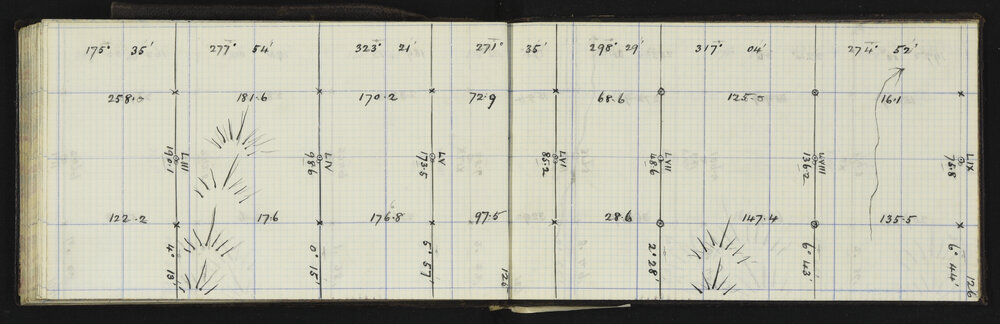 175° 35′ 277° 54′ 323° 21′ 271° 35′ 298° 29′ 317° 04′ 274° 52′
258.0 181.6 170.2 72.9 68.6 125.0 16.1
LIII LIV LV LVI LVII LVIII LIX
190.1 98.6 173.5 85.2 48.6 136.2 75.8
122.2 17.6 176.8 97.5 28.6 147.4 135.5
4° 13′ 0° 15′ 5° 57′ 2° 28′ 6° 43′ 6° 44′
126 126